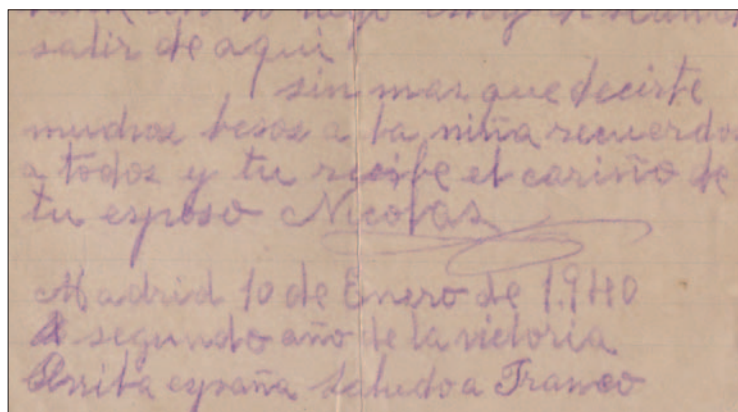 salir de aqui
sin mas que decirte
muchos besos a la niña recuerdos
a todos y tu recibe el cariño de
tu esposo Nicolas
Madrid 10 de Enero de 1.940
segundo año de la victoria
Arriba españa Saludo a Franco